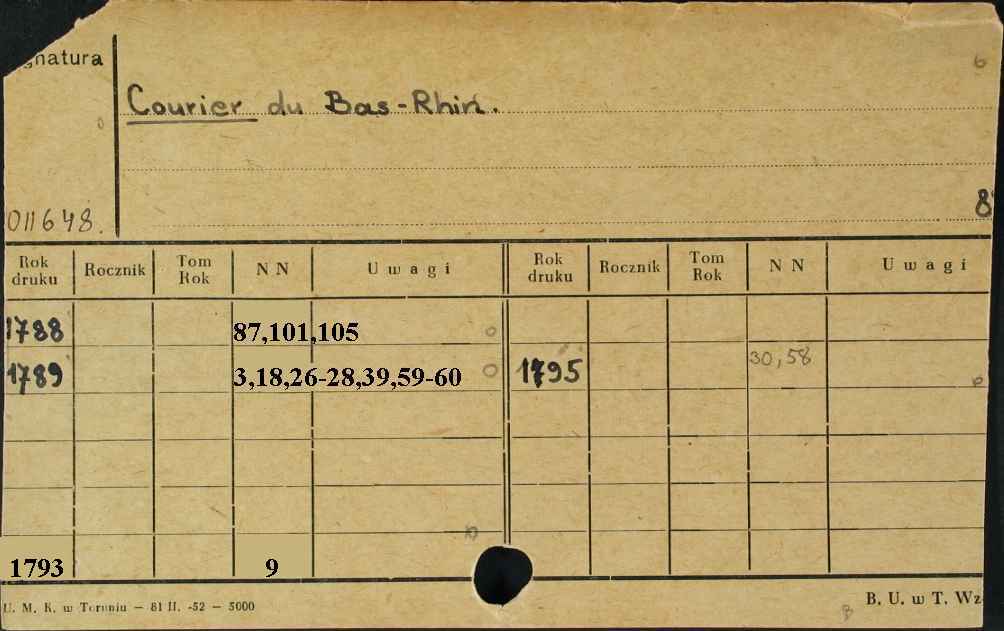 gnatura
6
Courier du Bas-Rhin.
011648.
8
Rok druku Rocznik Tom Rok NN Uwagi Rok druku Rocznik Tom Rok NN Uwagi
1788 87,101,105
1789 3,18,26-28,39,59-60 1795 30,58
1793 9
U. M. K. w Toruniu — 81 II. -52 — 5000
B. U. w T. Wz